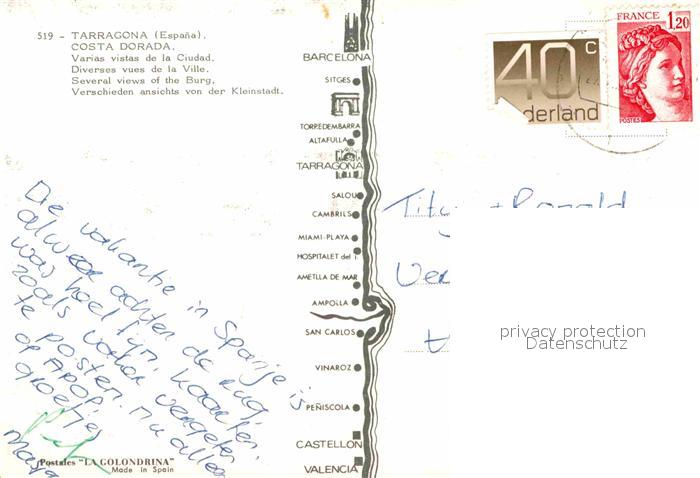 519 - TARRAGONA (España).
COSTA DORADA.
Varias vistas de la Ciudad.
Diverses vues de la Ville.
Several views of the Burg.
Verschieden ansichts von der Kleinstadt.
BARCELONA
SITGES
TORREDEMBARRA
ALTAFULLA
TARRAGONA
SALOU
CAMBRILS
MIAMI-PLAYA
HOSPITALET del I.
AMETLLA DE MAR
AMPOLLA
SAN CARLOS
VINAROZ
PEÑISCOLA
CASTELLON
VALENCIA
40 c
derland
FRANCE
1,20
POSTES
De vakantie in Spanje is
alweer achten de rug,
was heel fijn, kaarten
zoals vergeten
te posten. Nu alles
op
groetjes
Postales "LA GOLONDRINA"
Made in Spain
privacy protection
Datenschutz